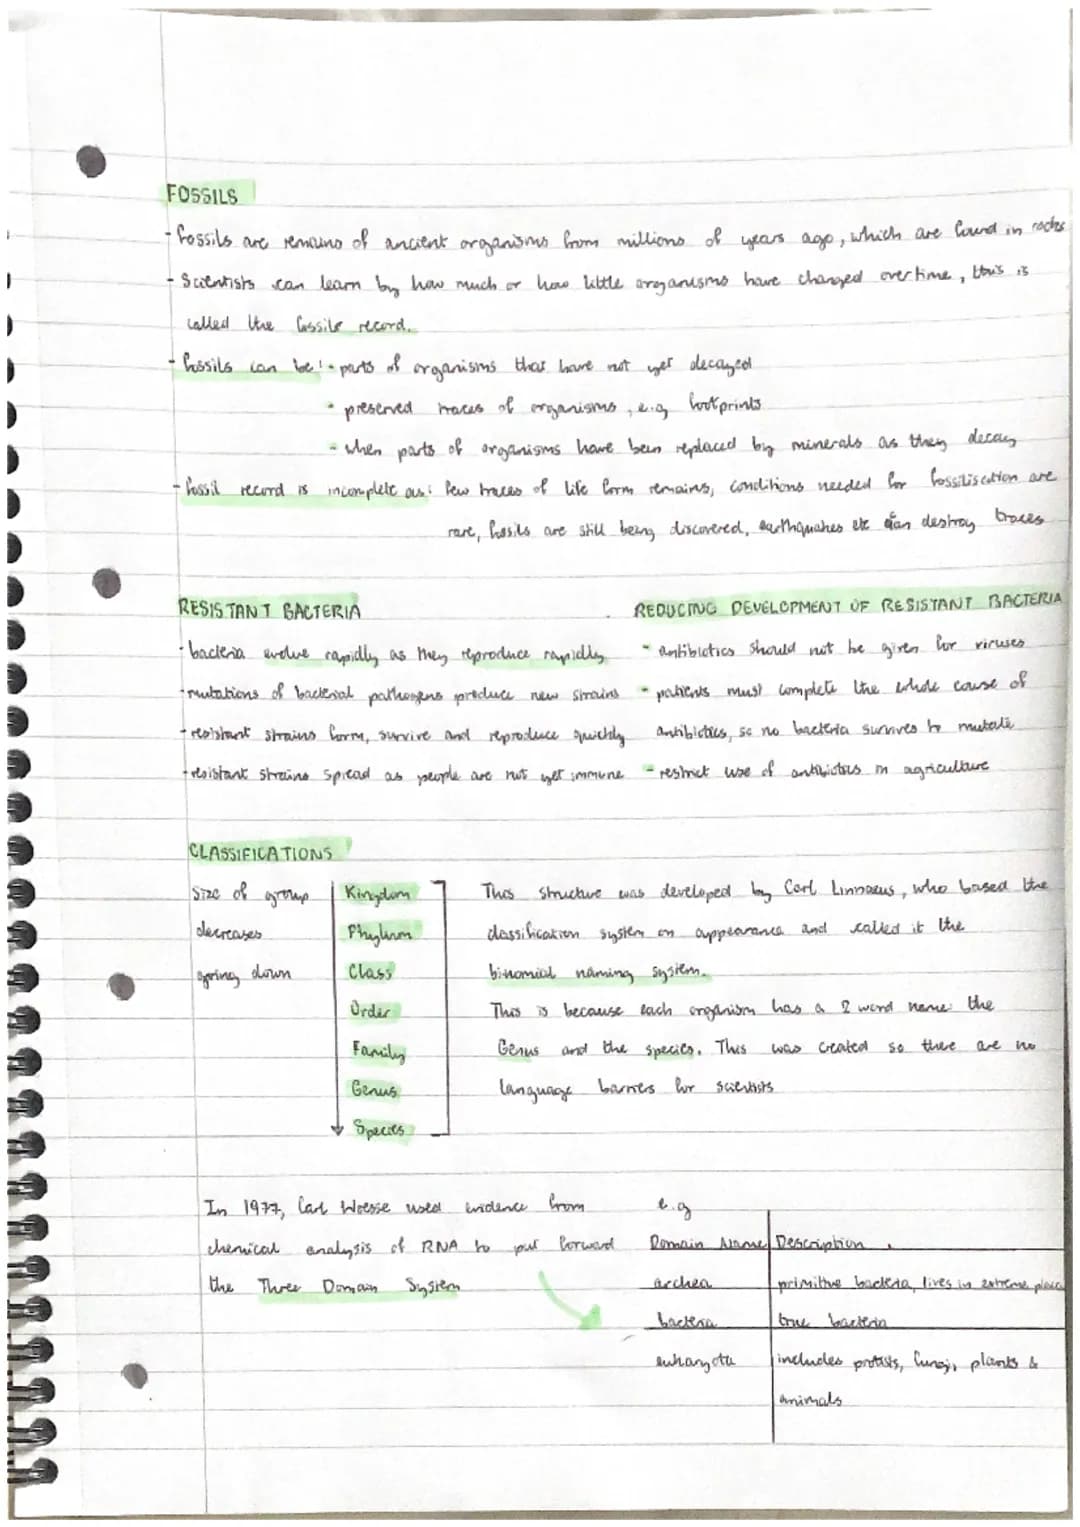 FOSSILS
- fossils are remains of ancient organisms from millions of years ago, which are found in rocks
- Scientists can learn by how much or how little organisms have changed overtime, this is
called the fossils record.
- fossils can be: - parts of organisms that have not yet decayed
- preserved traces of organisms, e.g footprints
- when parts of organisms have been replaced by minerals as they decay
- fossil record is incomplete as: few traces of life form remains, conditions needed for fossilisation are
rare, fossils are still being discovered, earthquakes etc can destroy traces
RESISTANT BACTERIA
- bacteria evolve rapidly as they reproduce rapidly
- mutations of bacterial pathogens produce new strains
- resistant strains form, survive and reproduce quickly
- resistant strains spread as people are not yet immune
REDUCING DEVELOPMENT OF RESISTANT BACTERIA
- antibiotics should not be given for viruses
- patients must complete the whole course of
antibiotics, so no bacteria survives to mutate
- restrict use of antibiotics in agriculture
CLASSIFICATIONS
Size of group
decreases
going down
Kingdom
Phylum
Class
Order
Family
Genus
Species
This structure was developed by Carl Linnaeus, who based the
classification system on appearance and called it the
binomial naming system.
This is because each organism has a 2 word name: the
Genus and the species. This was created so there are no
language barriers for scientists
In 1977, Carl Woesse used evidence from
chemical analysis of RNA to put forward
the Three Domain System
e.g
Domain Name Description
archea primitive bacteria, lives in extreme places
bacteria true bacteria
eukaryota includes protists, fungi, plants &
animals